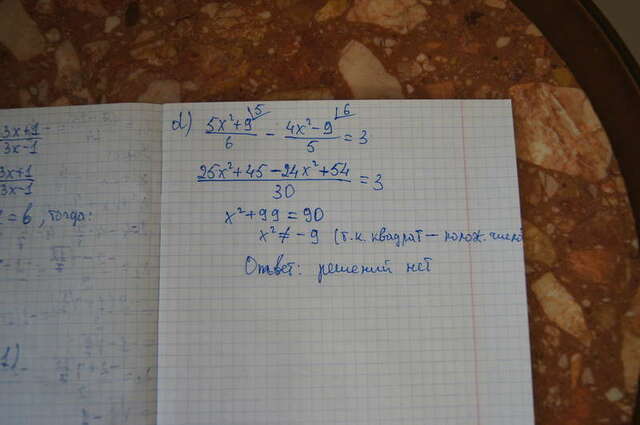 3x+1
3x-1
3x+1
3x-1
= b, тогда:
1)
d) (5x²+9)/6 \5 - (4x²-9)/5 \6 = 3
(25x²+45-24x²+54)/30 = 3
x²+99=90
x² ≠ -9 (т.к. квадрат — полож. число
Ответ: решений нет